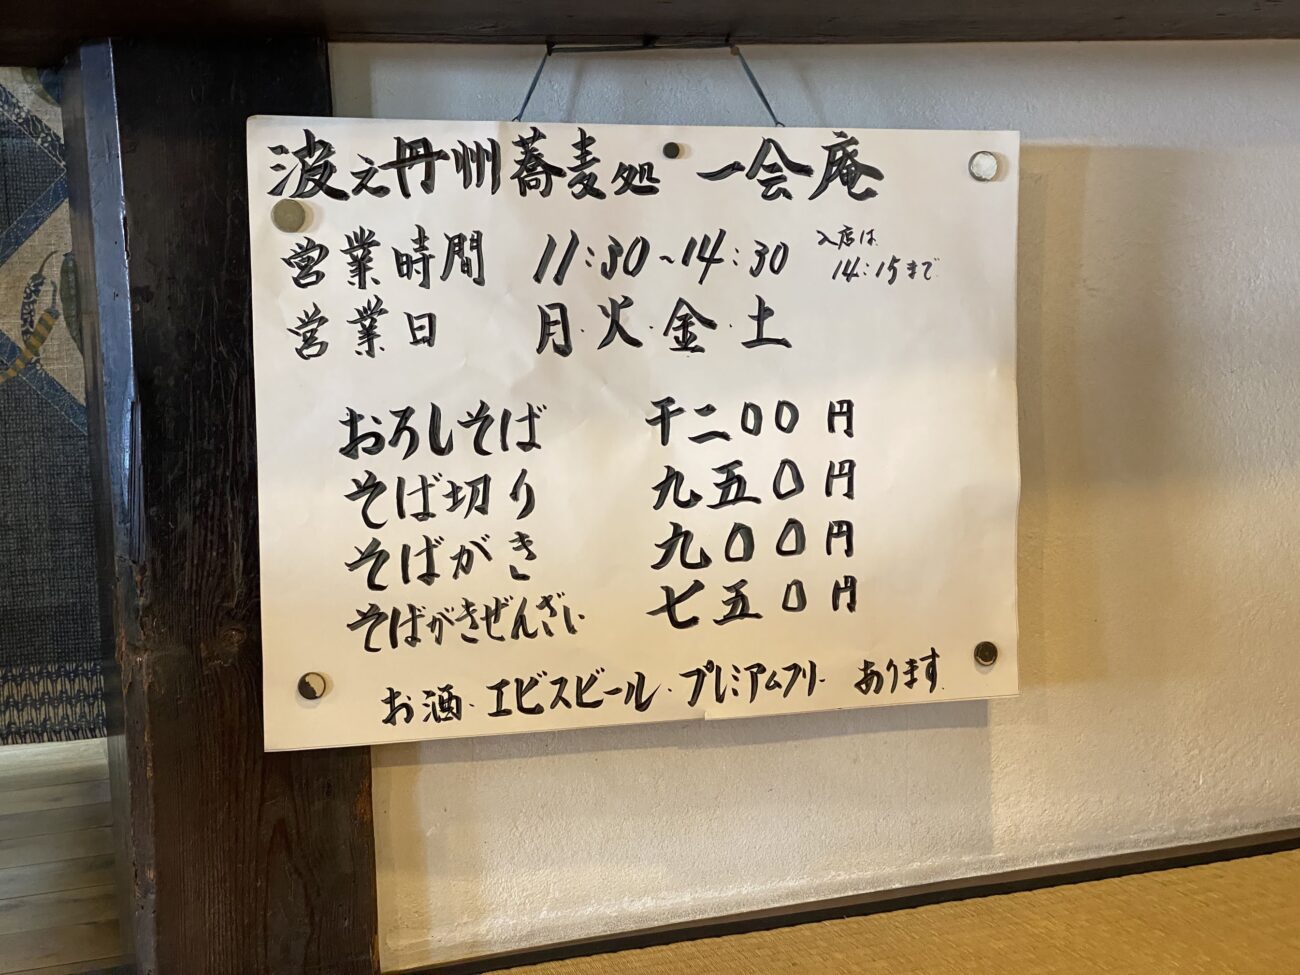 波之丹州蕎麦処 一会庵
営業時間 11:30~14:30 入店は 14:15まで
営業日 月・火・金・土
おろしそば 千二〇〇円
そば切り 九五〇円
そばがき 九〇〇円
そばがきぜんざい 七五〇円
お酒・エビスビール・プレミアムフリー あります